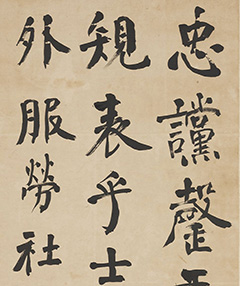 忠讜罄
規表乎士
外服勞社